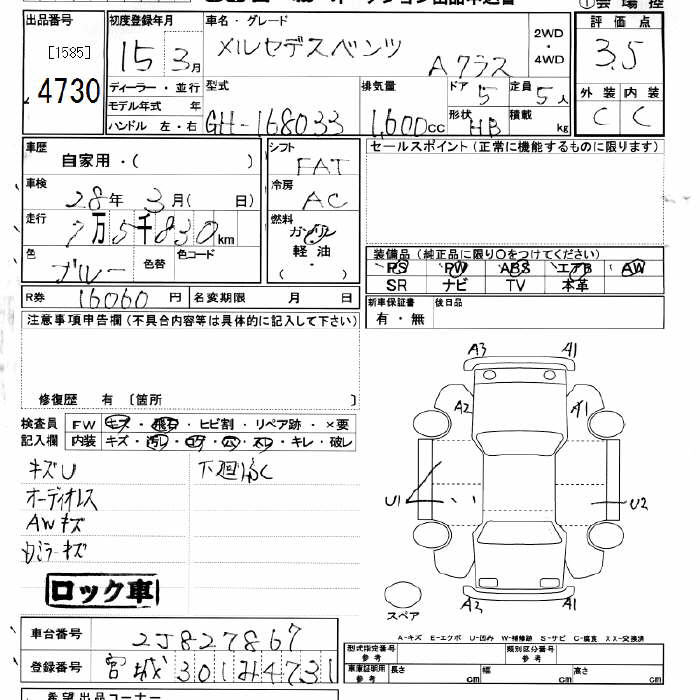 出品番号
[1585]
4730
初度登録年月
15 3月
ディーラー・並行
モデル年式 年
ハンドル 左・右
車名・グレード
メルセデスベンツ Aクラス
2WD
・
4WD
型式
GH-168033
排気量
1,600cc
ドア 5
形状 HB
定員 5人
積載 kg
評価点
3.5
外装 内装
C C
車歴
自家用・( )
車検
28年 3月( 日)
走行
7万5千830km
色
ブルー
色替
色コード
シフト
FAT
冷房
AC
燃料
ガソリン
軽油
( ・ )
セールスポイント(正常に機能するものに限ります)
装備品(純正品に限り〇をつけてください)
PS PW ABS エアB AW
SR ナビ TV 本革
R券 16060円 名変期限 月 日
新車保証書
有・無
後日品
注意事項申告欄(不具合内容等は具体的に記入して下さい)
修復歴 有 〔箇所 〕
検査員 FW キズ・飛石・ヒビ割・リペア跡・×要
記入欄 内装 キズ・汚レ・コゲ・穴・スレ・キレ・破レ
キズU
オーディオレス
AWキズ
ミラーキズ
ロック車
A3 A1
A2 A1
U1 U2
A3 A1
スペア
A-キズ E-エクボ U-凹み W-補修跡 S-サビ C-腐食 XX-交換済
車台番号 2J827867
登録番号 宮城301み4731
型式指定番号
参考
類別区分番号
車庫証明用
参考
長さ cm 幅 cm 高さ cm
希望出品コーナー